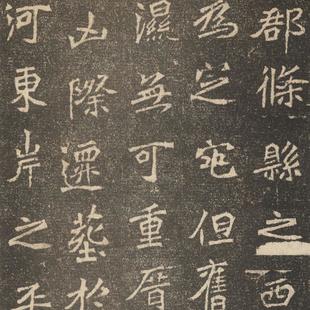 郡條縣之西
為窆宅但舊
濕無可重厝
山際遷葬於
河東岸之平